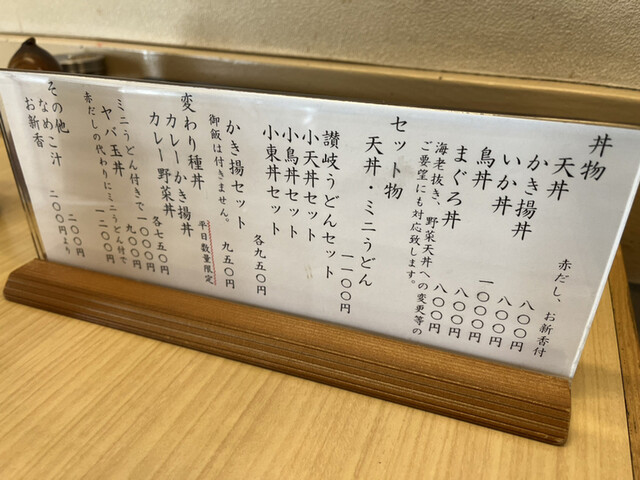 丼物　赤だし、お新香付
天丼　八〇〇円
かき揚丼　八〇〇円
いか丼　一〇〇〇円
鳥丼　八〇〇円
まぐろ丼　八〇〇円
海老抜き、野菜天丼への変更等の
ご要望にも対応致します。
セット物
天丼・ミニうどん
讃岐うどんセット　一一〇〇円
小天丼セット
小鳥丼セット
小東丼セット　各九五〇円
かき揚セット　九五〇円
御飯は付きません。　平日数量限定
変わり種丼
カレーかき揚丼
カレー野菜丼　各七五〇円
ミニうどん付きで一〇〇〇円
ヤバ玉丼　九〇〇円
赤だしの代わりにミニうどん付で　一二〇〇円
その他
なめこ汁　二〇〇円
お新香　二〇〇円より